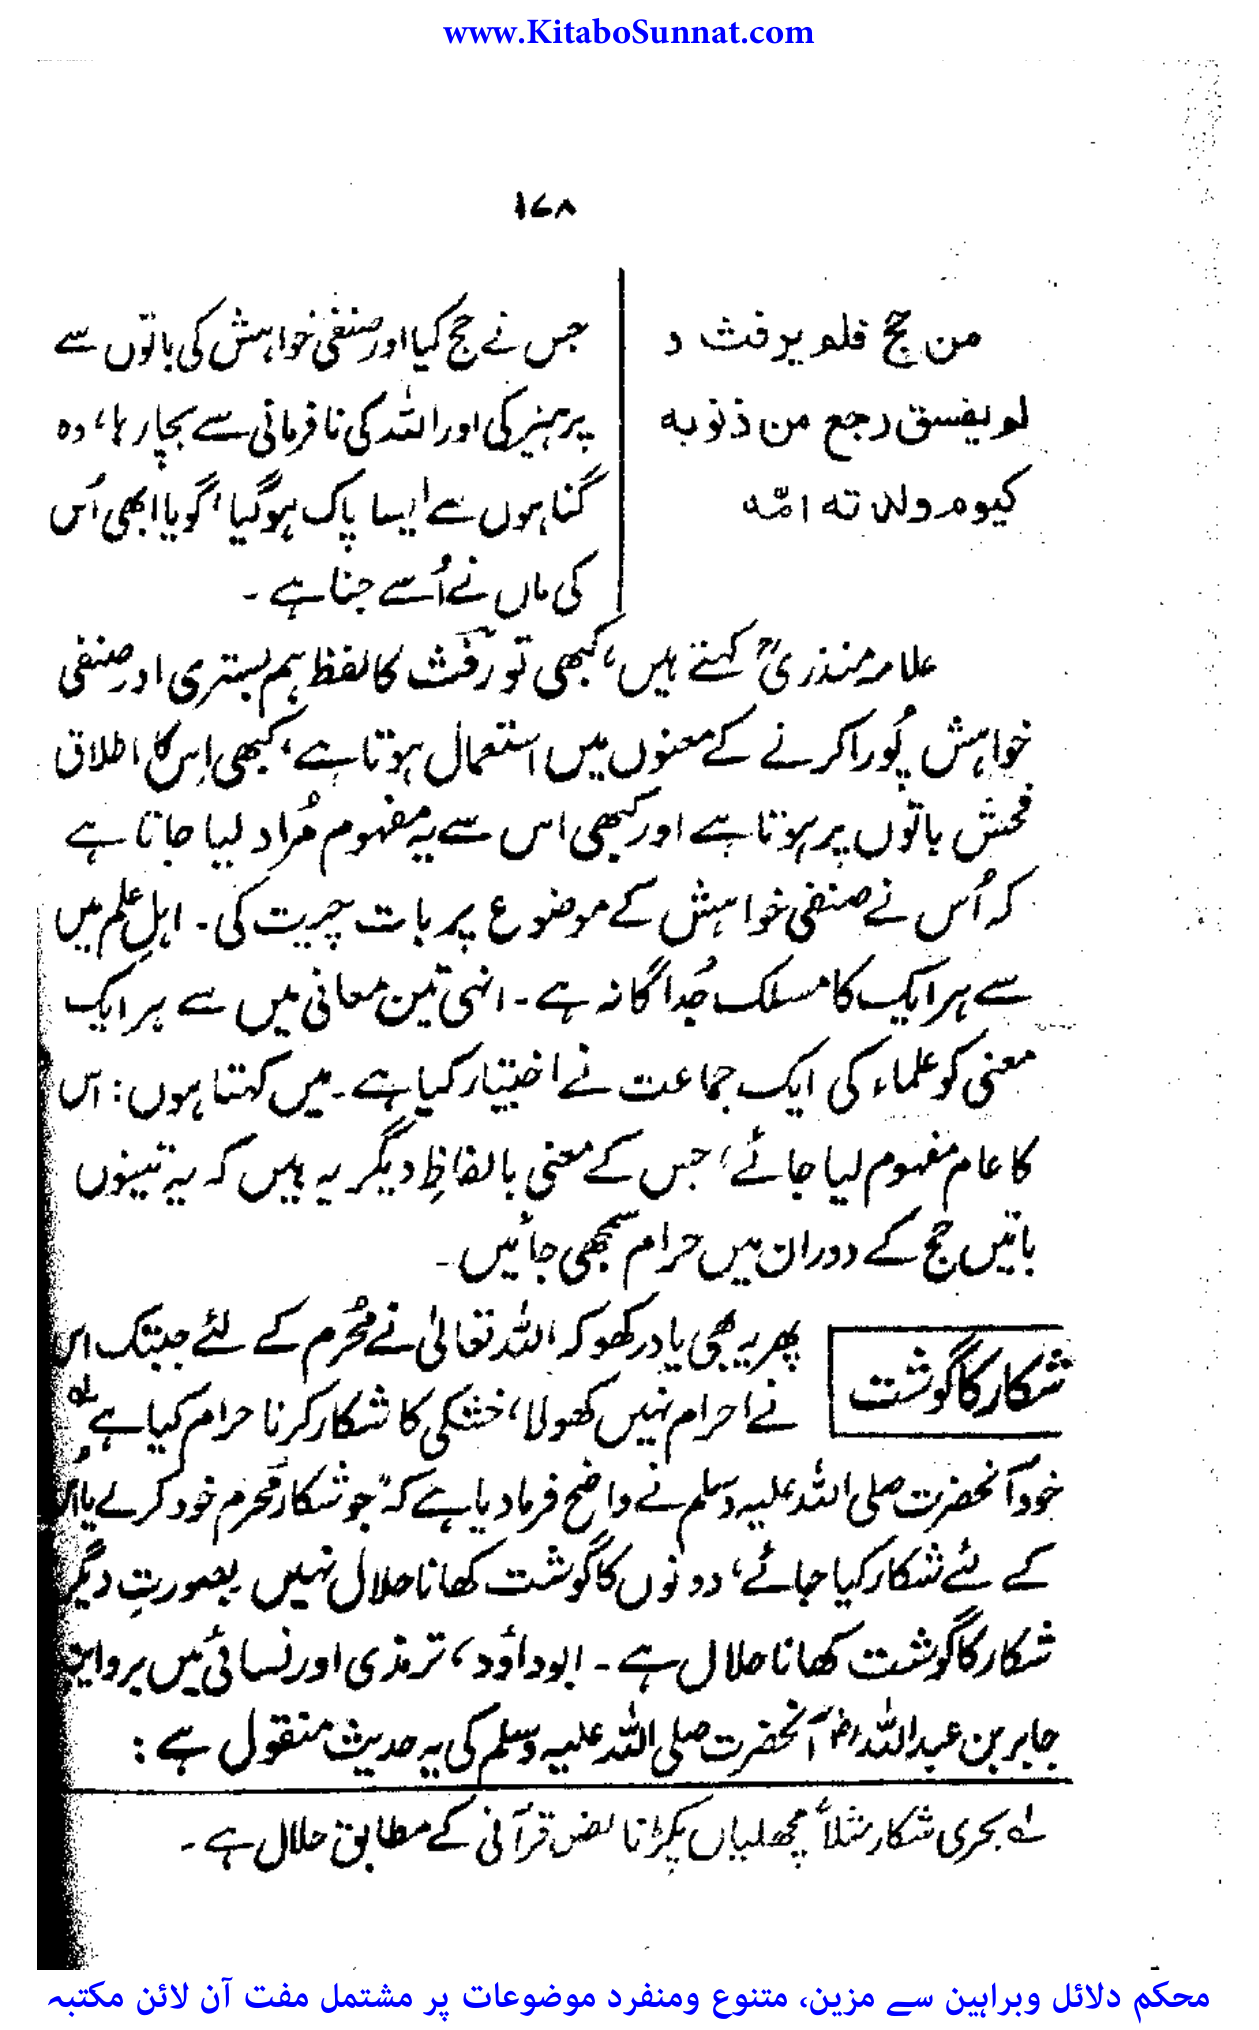 www.KitaboSunnat.com
۱۷۸
من حج فلم يرفث و
لم يفسق رجع من ذنوبه
كيوم ولدته امّه
جس نے حج کیا اور صنفی خواہش کی باتوں سے
پرہیز کی اور اللہ کی نافرمانی سے بچا رہا، وہ
گناہوں سے ایسا پاک ہوگیا، گویا ابھی اُس
کی ماں نے اُسے جنا ہے ۔
علامہ منذریؒ کہتے ہیں، کبھی تو رفث کا لفظ ہم بستری اور صنفی
خواہش پُورا کرنے کے معنوں میں استعمال ہوتا ہے، کبھی اِس کا اطلاق
فحش باتوں پر ہوتا ہے اور کبھی اس سے یہ مفہوم مُراد لیا جاتا ہے
کہ اُس نے صنفی خواہش کے موضوع پر بات چیت کی ۔ اہلِ علم میں
سے ہر ایک کا مسلک جُداگانہ ہے ۔ انہی تین معانی میں سے ہر ایک
معنی کو علماء کی ایک جماعت نے اختیار کیا ہے ۔ میں کہتا ہوں : اس
کا عام مفہوم لیا جائے، جس کے معنی بالفاظِ دیگر یہ ہیں کہ یہ تینوں
باتیں حج کے دوران میں حرام سمجھی جائیں ۔
شکار کا گوشت
پھر یہ بھی یاد رکھو کہ اللہ تعالیٰ نے مُحرم کے لئے جبتک اس
نے احرام نہیں کھولا، خشکی کا شکار کرنا حرام کیا ہے لہ
خود آنحضرت صلی اللہ علیہ وسلم نے واضح فرما دیا ہے کہ "جو شکار مُحرم خود کرے یا اس
کے لئے شکار کیا جائے، دونوں کا گوشت کھانا حلال نہیں بصورتِ دیگر
شکار کا گوشت کھانا حلال ہے ۔ ابوداؤد، ترمذی اور نسائی میں بروایت
جابر بن عبداللہؓ آنحضرت صلی اللہ علیہ وسلم کی یہ حدیث منقول ہے :
لہ بحری شکار مثلاً مچھلیاں پکڑنا نص قرآنی کے مطابق حلال ہے ۔
محکم دلائل وبراہین سے مزین، متنوع ومنفرد موضوعات پر مشتمل مفت آن لائن مکتبہ